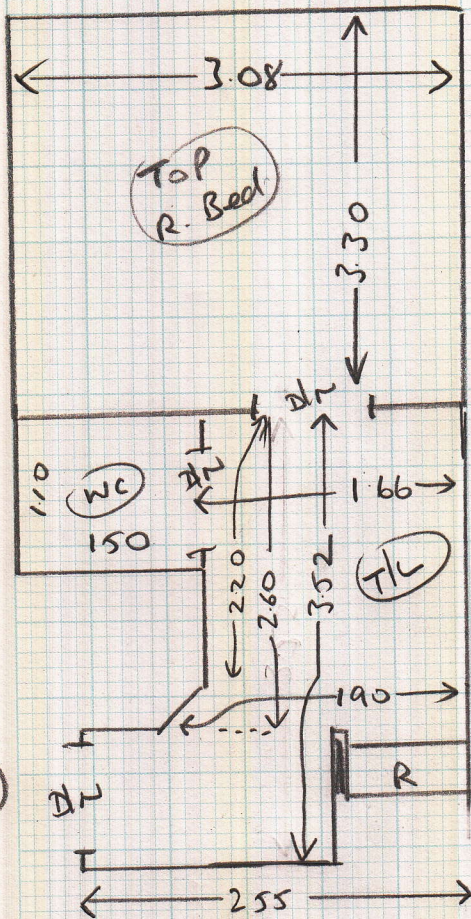 3.08
TOP
R. Bed
3.30
D/N
D/N
1.10
WC
150
1.66
T/L
2.20
2.60
3.52
190
D/N
R
255